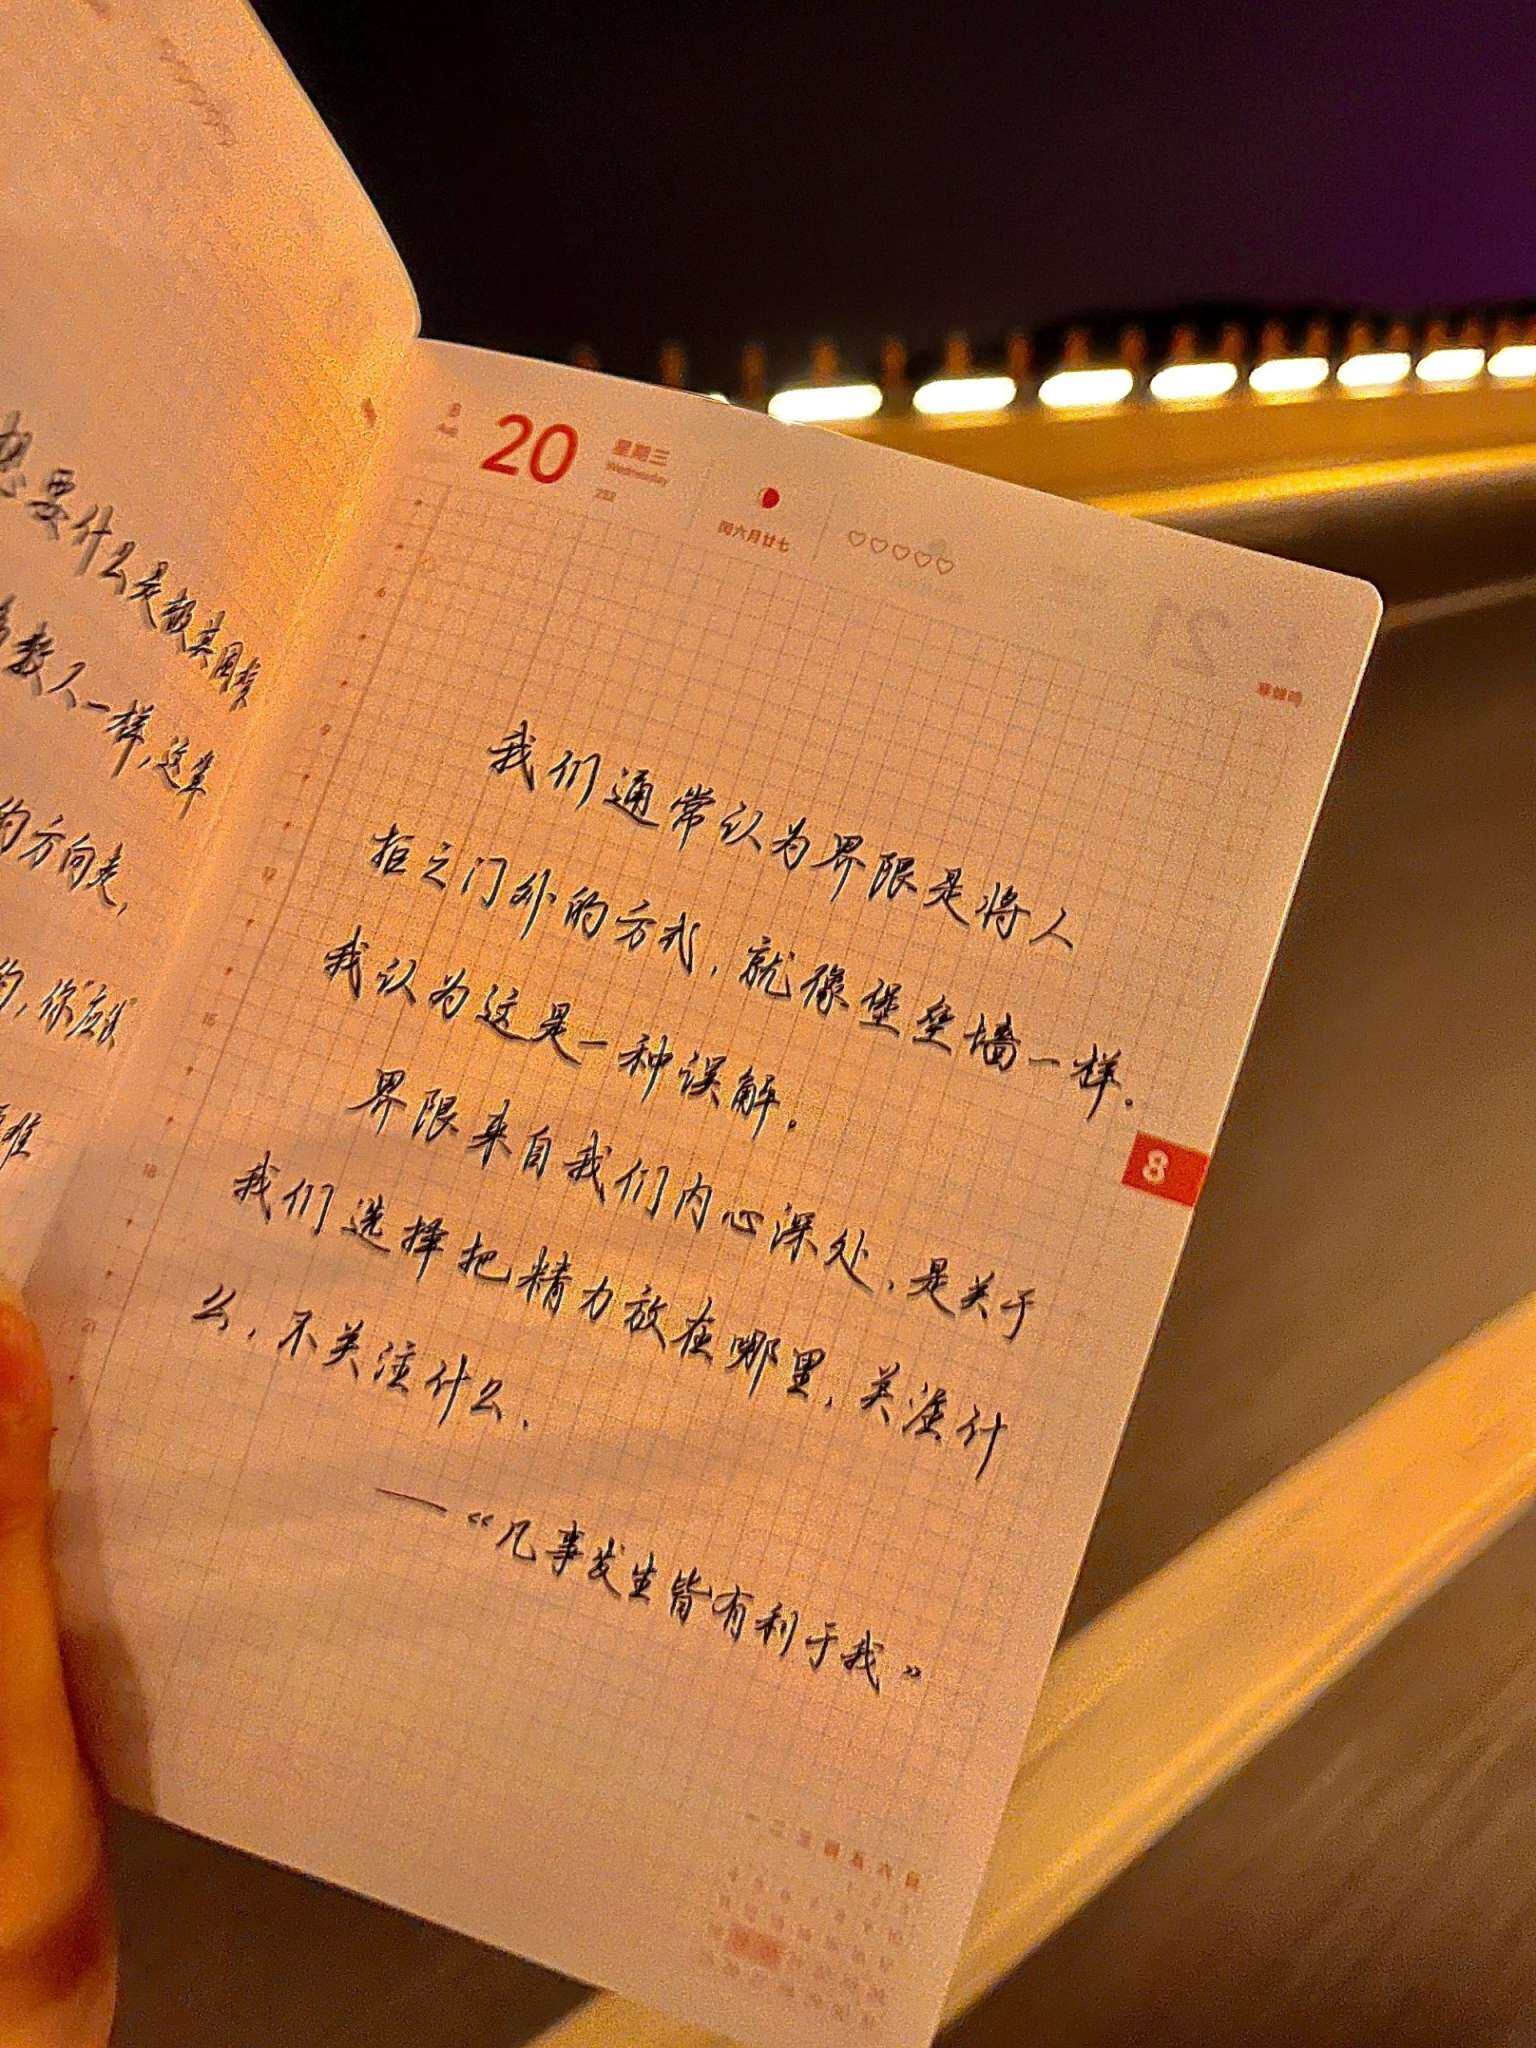 想要什么是极其困难
多数人一样,这辈
的方向走,
的,你应该
8
Aug.
20
星期三
Wednesday
闰六月廿七
♡♡♡♡♡
寒蝉鸣
6
9
12
15
18
21
我们通常认为界限是将人
拒之门外的方式,就像堡垒墙一样。
我认为这是一种误解。
界限来自我们内心深处,是关于
我们选择把精力放在哪里,关注什
么,不关注什么.
—“凡事发生皆有利于我”
8
一 二 三 四 五 六 日